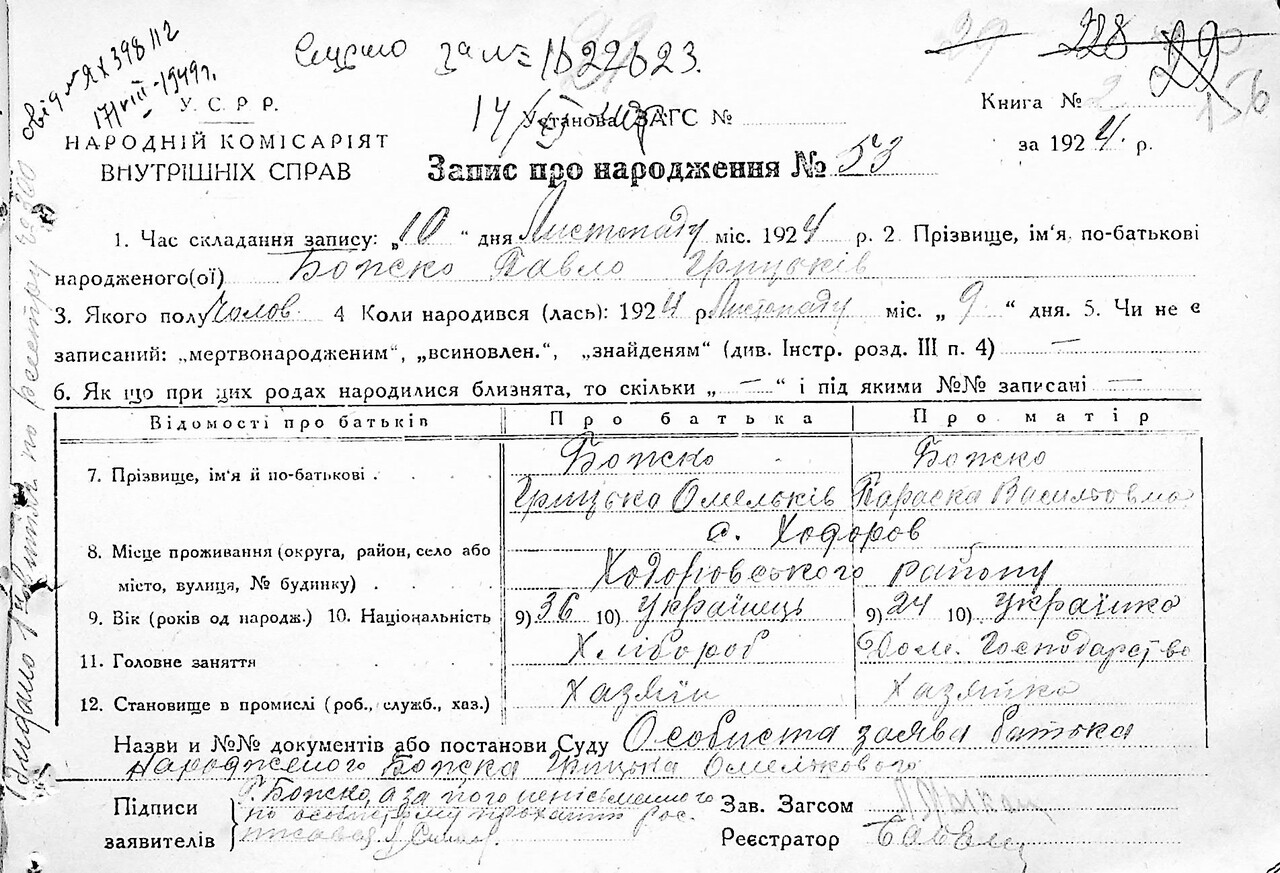 свід № ЯХ 398112
17/VIII-1949 г.
за № 1622623.
29 228 29
156
У. С. Р. Р.
НАРОДНІЙ КОМІСАРІЯТ
ВНУТРІШНІХ СПРАВ
14/XI
Установа ЗАГС №
Книга № 2
за 1924 р.
Запис про народження № 53
1. Час складання запису: „10“ дня Листопаду міс. 1924 р. 2 Прізвище, ім'я по-батькові
народженого(ої) Божко Павло Грицьків
3. Якого полу Чолов. 4 Коли народився (лась): 1924 р Листопаду міс. „9“ дня. 5. Чи не є
записаний: „мертвонародженим“, „всиновлен.“, „знайденям“ (див. Інстр. розд. III п. 4) —
6. Як що при цих родах народилися близнята, то скільки „—“ і під якими №№ записані —
Відомості про батьків Про батька Про матір
7. Прізвище, ім'я й по-батькові . Божко Божко
Грицько Омельків Параска Василтовма
8. Місце проживання (округа, район, село або с. Ходоров
місто, вулиця, № будинку) . Ходоровського району
9. Вік (років од народж.) 10. Національність 9) 36 10) Українець 9) 24 10) Українка
11. Головне заняття Хлібороб Дом. Господарство
12. Становище в промислі (роб., служб., хаз.) Хазяїн Хазяйка
Назви и №№ документів або постанови Суду Особиста заява батька
народженого Божка Грицька Омелькового
Підписи Г. Божко, а за його неписьменного Зав. Загсом
заявителів по особистому проханню рос. Реєстратор